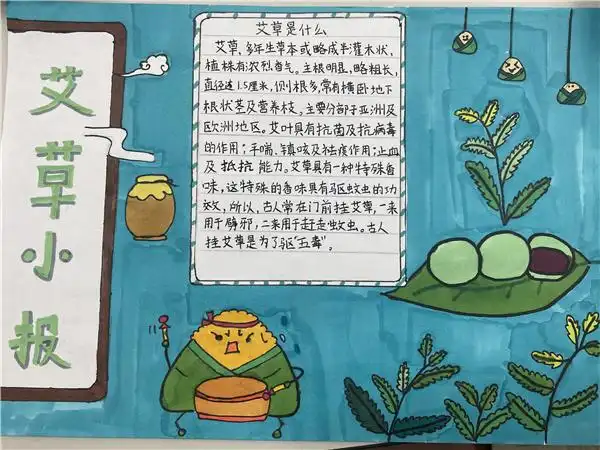 艾草小报
艾草是什么
艾草,多年生草本或略成半灌木状,
植株有浓烈香气。主根明显,略粗长,
直径达1.5厘米,侧根多,常有横卧地下
根状茎及营养枝。主要分部于亚洲及
欧洲地区。艾叶具有抗菌及抗病毒
的作用;平喘、镇咳及祛痰作用;止血
及抵抗能力。艾草具有一种特殊香
味,这特殊的香味具有驱蚊虫的功
效,所以,古人常在门前挂艾草,一来
用于辟邪,二来用于赶走蚊虫。古人
挂艾草是为了驱“五毒”。